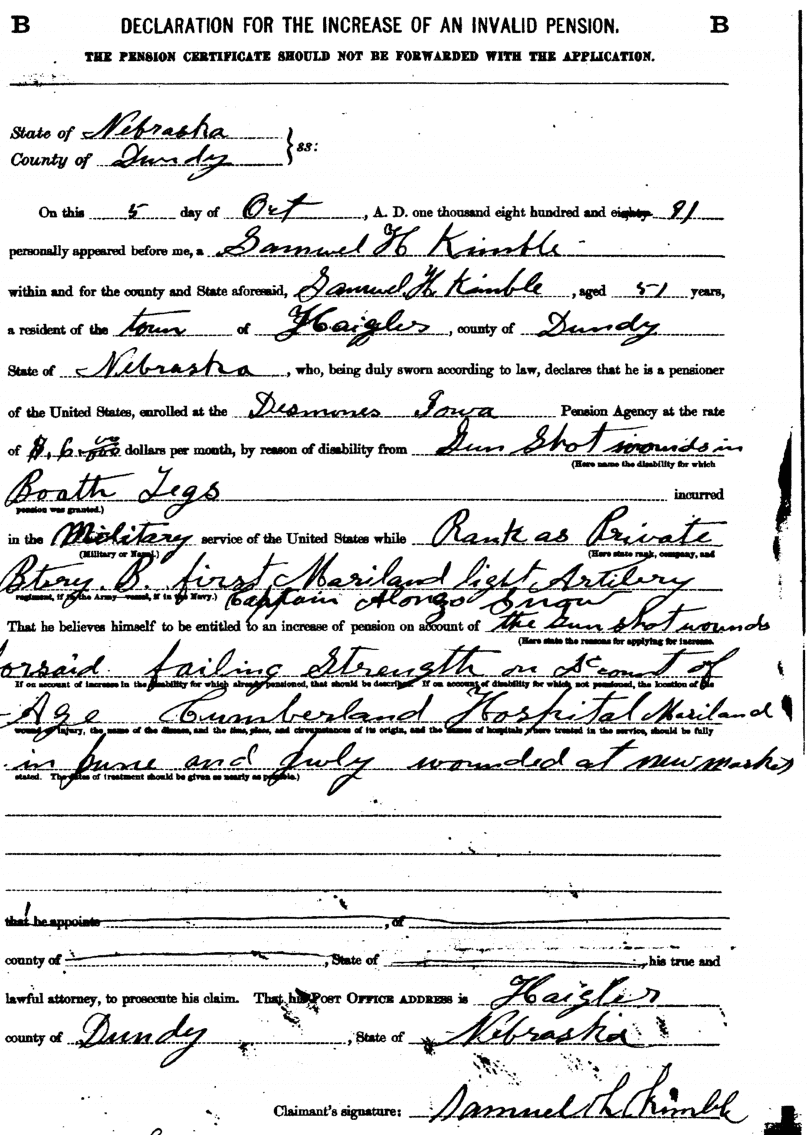 B DECLARATION FOR THE INCREASE OF AN INVALID PENSION. B
THE PENSION CERTIFICATE SHOULD NOT BE FORWARDED WITH THE APPLICATION.
State of Nebraska
County of Dundy } ss:
On this 5 day of Oct, A. D. one thousand eight hundred and eighty 91
personally appeared before me, a Samuel H Kimble
within and for the county and State aforesaid, Samuel H Kimble, aged 51 years,
a resident of the town of Haigler, county of Dundy
State of Nebraska, who, being duly sworn according to law, declares that he is a pensioner
of the United States, enrolled at the Desmones Iowa Pension Agency at the rate
of $ 6 dollars per month, by reason of disability from Gun Shot wounds in
(Here name the disability for which
Boath Legs incurred
pension was granted.)
in the Military service of the United States while Rank as Private
(Military or Naval.) (Here state rank, company, and
Btery. B. first Mariland light Artilery
regiment, if in the Army—vessel, if in the Navy.) Captain Alonzo Snow
That he believes himself to be entitled to an increase of pension on account of the Gun shot wounds
(Here state the reasons for applying for increase.
orsaid failing Strength on Account of
If on account of increase in the disability for which already pensioned, that should be described. If on account of disability for which not pensioned, the location of the
Age Cumberland Hospital Mariland
wound or injury, the name of the disease, and the time, place, and circumstances of its origin, and the names of hospitals where treated in the service, should be fully
in June and July wounded at new market
stated. The dates of treatment should be given as nearly as possible.)
that he appoints , of
county of , State of , his true and
lawful attorney, to prosecute his claim. That his POST OFFICE ADDRESS is Haigler
county of Dundy, State of Nebraska
Claimant's signature: Samuel H Kimble